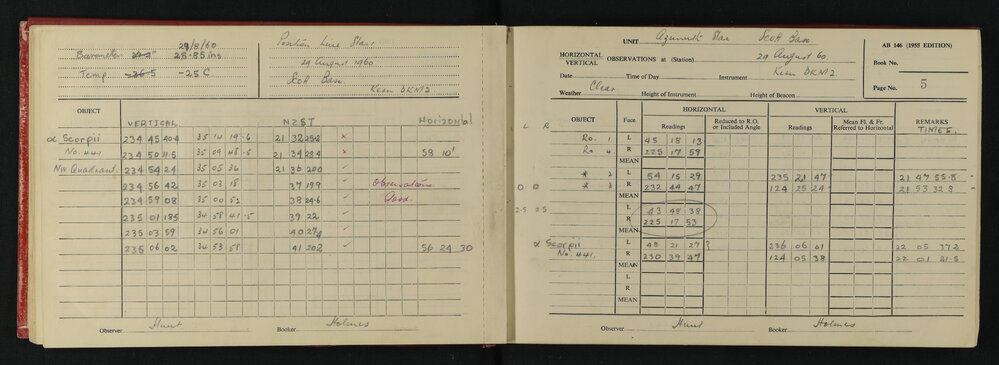 29/8/60
Barometer 28.85 ins
Temp. -26.5 -25 C
Position Line Stars
29 August 1960
Scott Base.
Kern DKM2
OBJECT
VERTICAL NZST Horizontal
α Scorpii 234 45 40.4 35 14 19.6 21 32 25.2 ×
No. 441 234 50 11.5 35 09 48.5 21 34 23.4 × 58 10'
NW Quadrant 234 54 24 35 05 36 21 36 20.0 ✓
234 56 42 35 03 18 37 19.9 ✓ Observations
234 59 08 35 00 52 38 24.6 ✓ Good.
235 01 18.5 34 58 41.5 39 22 ✓
235 03 59 34 56 01 40 27.4 ✓
235 06 02 34 53 58 41 20.2 ✓ 56 24 30
Observer Hunt Booker Holmes
UNIT Azimuth Star Scott Base.
AB 146 (1955 EDITION)
HORIZONTAL
VERTICAL
OBSERVATIONS at (Station) 29 August 60.
Book No.
Date Time of Day Instrument Kern DKM2
Weather Clear Height of Instrument Height of Beacon
Page No. 5
OBJECT Face HORIZONTAL VERTICAL REMARKS
Readings Reduced to R.O. or Included Angle Readings Mean Fl. & Fr. Referred to Horizontal TIMES.
L R
Ro. 1 L 45 18 13
Ro 4 R 225 17 59
MEAN
* 2 L 54 15 29 235 21 47 21 47 55.8
0 0 * 3 R 232 44 47 124 25 24 21 53 32.8
MEAN
25 25 L 43 48 38
R 225 17 53
MEAN
α Scorpii L 48 21 27 236 06 01 22 05 37.2
No. 441. R 230 39 47 124 05 38 22 01 21.8
MEAN
L
R
MEAN
Observer Hunt Booker Holmes